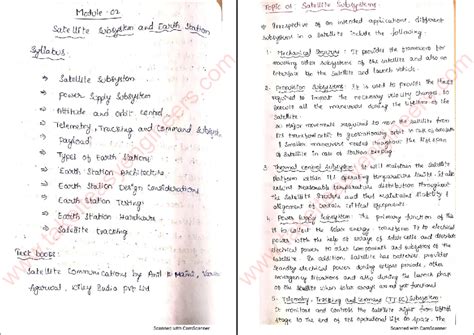 Module - 02
Satellite Subsystem and Earth Station
Syllabus:
Satellite Subsystem
Power Supply Subsystem
Attitude and orbit control
Telemetry, Tracking and Command Subsystem
Payload
Types of Earth Station
Earth Station Architecture
Earth Station Design Considerations
Earth Station Testing
Earth Station Hardware
Satellite tracking
Text book:
Satellite Communications by Anil K Maini, Varsha
Agarwal, Wiley India Pvt Ltd
Scanned with CamScanner
Topic 01: Satellite Subsystems
Irrespective of an intended application, different
Subsystems in a Satellite include the following:
1. Mechanical Structure: It provides the framework for
mounting other subsystems of the satellite and also an
interface b/w the Satellite and launch vehicle.
2. Propulsion Subsystem: It is used to provide the thrust
required to impart the necessary velocity changes to
execute all the maneuvers during the lifetime of the
Satellite.
Major movements required to move the satellite from
its transfer orbit to geostationary orbit in case of
smaller maneuvers needed throughout the lifespan
of Satellite in case of station keeping
3. Thermal control Subsystem: It will maintain the Satellite
platform within its operating temperature limits
reasonable temperature distribution throughout
the Satellite structure and thus maintains stability &
alignment of certain critical equipments.
4. Power Supply Subsystem: The primary function of the
is to collect the Solar energy, transform it to electrical
power with the help of arrays of solar cells and distribute
electrical power to other components and subsystems of the
satellite. In addition, Satellite has batteries, provides
standby electrical power during eclipse periods, other
emergency situations and also during the launch phase
of the satellite when solar arrays are not yet functional.
5. Telemetry, Tracking and Command (TT&C) Subsystem:
It monitors and controls the Satellite right from liftoff
stage to the end of the operational life in Space. The
Scanned with CamScanner